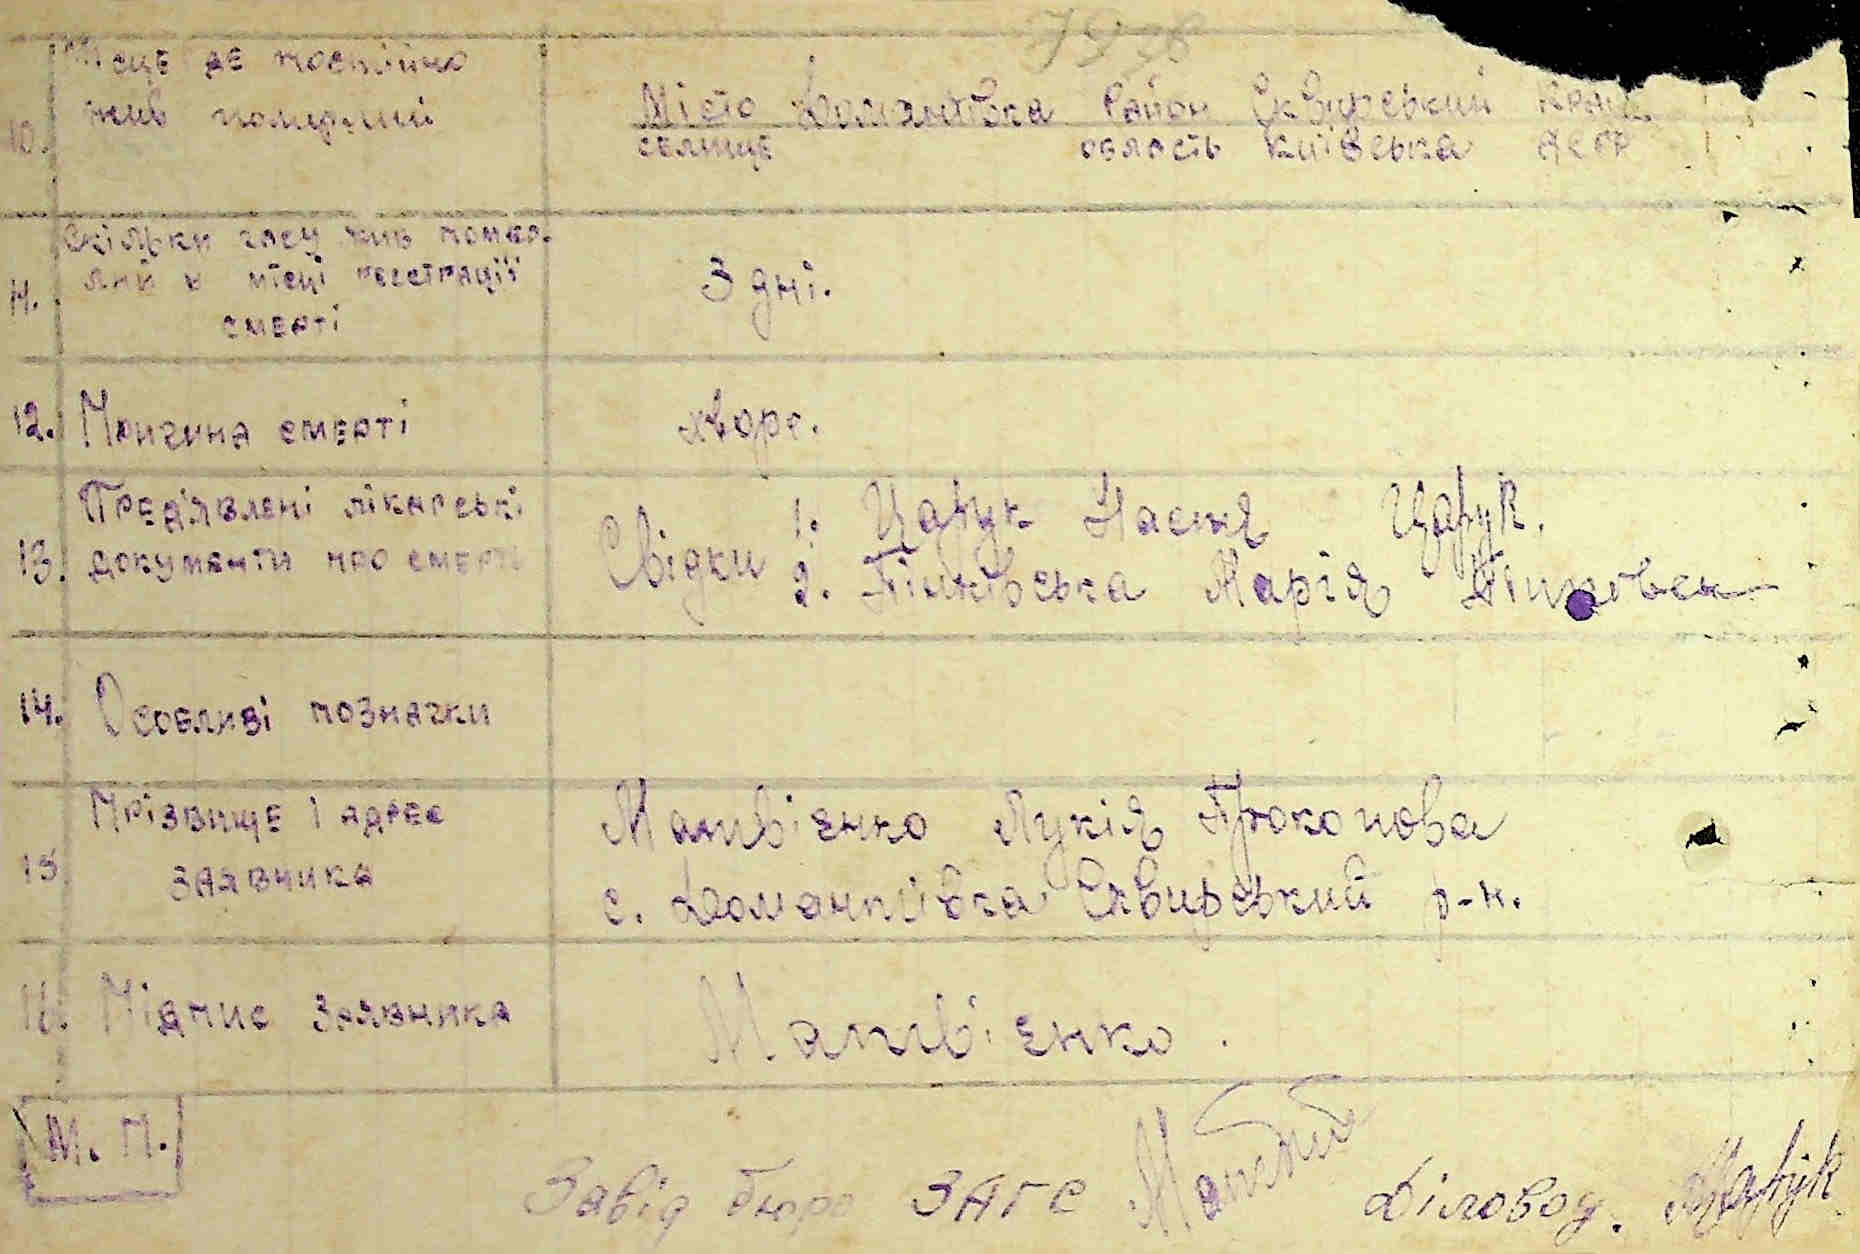 Місце де постійно
10. жив померлий
Місто Домантівка Район Сквирський Край
селище область Київська АССР
11. Скільки часу жив помер-
лий в місці реєстрації
смерті
3 дні.
12. Причина смерті
хворе.
13. Пред'явлені лікарські
документи про смерть
Свідки 1. Царук Настя Царук.
2. Пілківська Марія
14. Особливі позначки
15. Прізвище і адрес
заявника
Матвієнко Лукія Прокопова
с. Домантівка Сквирський р-н.
16. Підпис заявника
Матвієнко.
М. П.
Завід бюро ЗАГС Діловод. Царук